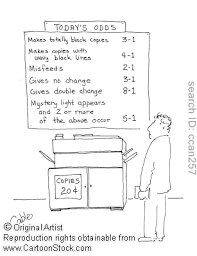 TODAY'S ODDS
Makes totally black copies 3-1
Makes copies with
wavy black lines 4-1
Misfeeds 2-1
Gives no change 3-1
Gives double change 8-1
Mystery light appears
and 2 or more
of the above occur 5-1
COPIES
20¢
search ID: ccan257
© Original Artist
Reproduction rights obtainable from
www.CartoonStock.com